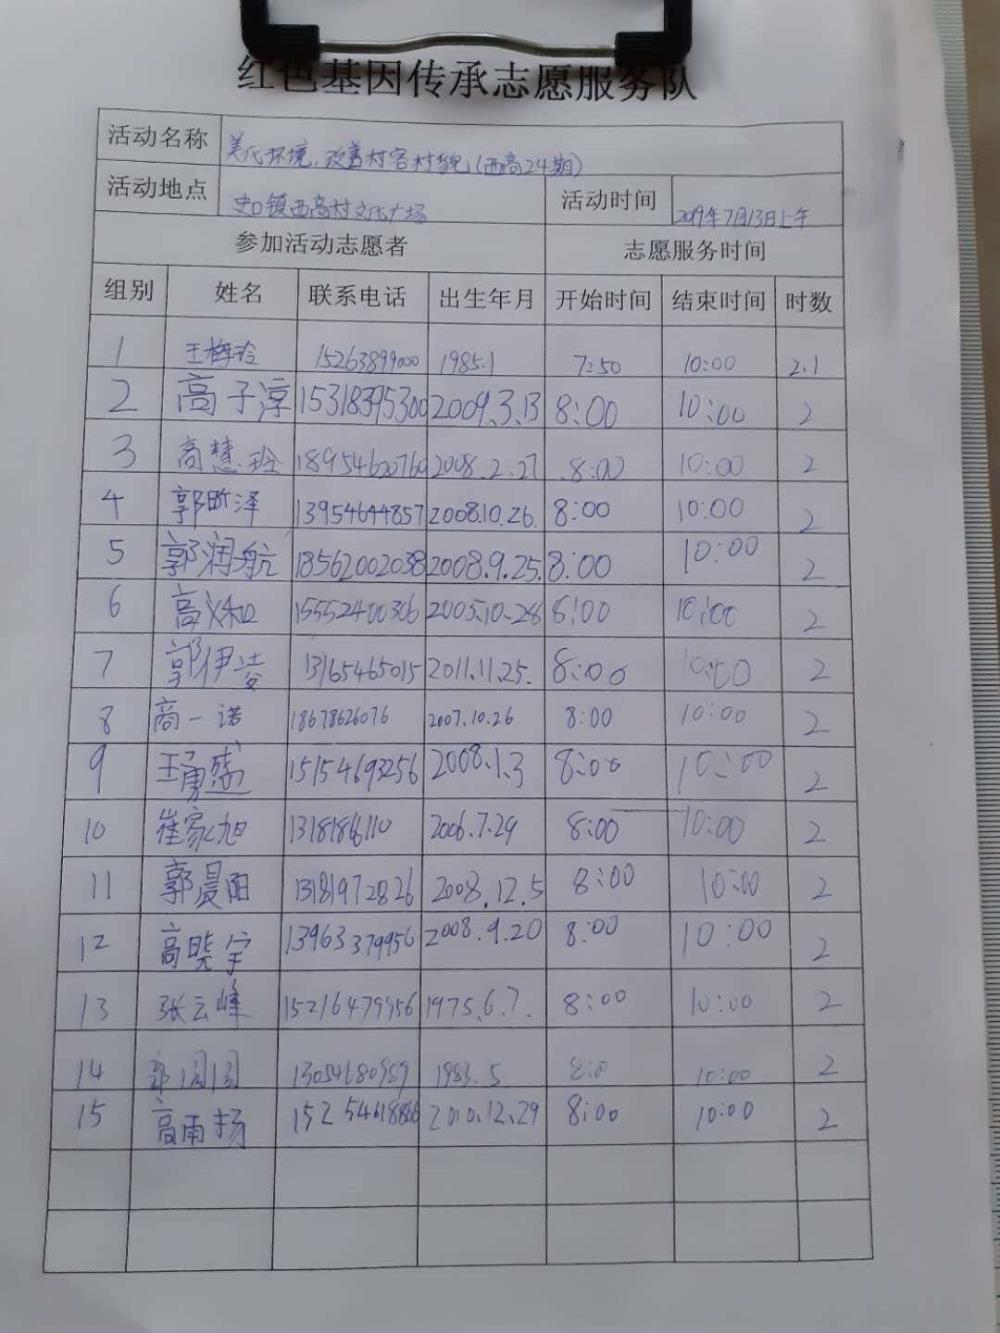 红色基因传承志愿服务队
活动名称 美化环境,改善村容村貌(西商24期)
活动地点 史口镇西商村文化广场 活动时间 2019年7月13日上午
参加活动志愿者 志愿服务时间
组别 姓名 联系电话 出生年月 开始时间 结束时间 时数
1 王梅玲 15263899000 1985.1 7:50 10:00 2.1
2 商子淳 15318395300 2009.3.13 8:00 10:00 2
3 商慧 18954620760 2008.2.27 8:00 10:00 2
4 郭昕泽 13954644857 2008.10.26. 8:00 10:00 2
5 郭润航 18562002038 2008.9.25. 8:00 10:00 2
6 商义和 15552400306 2005.10.28 8:00 10:00 2
7 郭伊凌 13165465015 2011.11.25. 8:00 10:00 2
8 商一诺 18678626076 2007.10.26 8:00 10:00 2
9 王勇盛 15154693256 2008.1.3 8:00 10:00 2
10 崔家旭 2006.7.29 8:00 10:00 2
11 郭晨阳 13181972826 2008.12.5 8:00 10:00 2
12 商晓宇 13963379956 2008.9.20 8:00 10:00 2
13 张云峰 15216479456 1975.6.7. 8:00 10:00 2
14 1983.5 8:0 10:00 2
15 商雨扬 2010.12.29 8:00 10:00 2